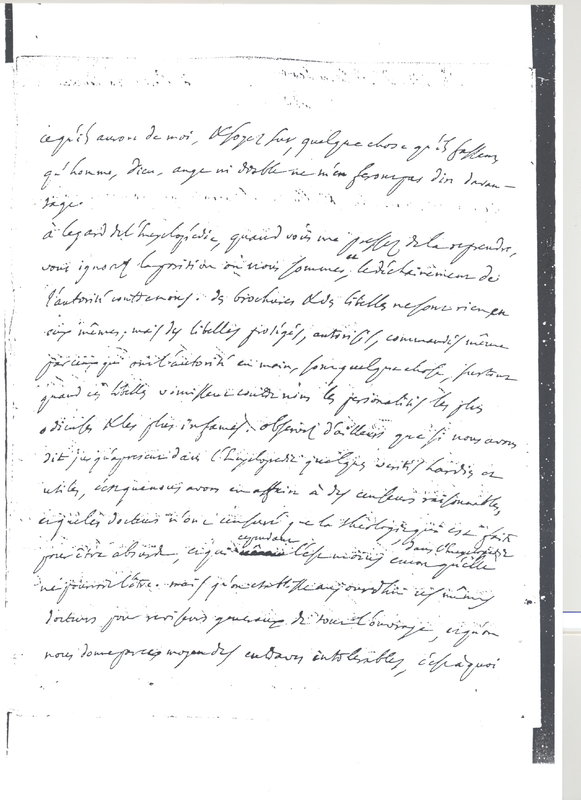 ce qu'ils auront de moi, & soyez sur, quelque chose qu'ils fassent,
qu'homme, Dieu, ange ni diable ne m'en feront pas dire davan-
tage.
à l'egard de l'Encyclopédie, quand vous me pressez de la reprendre,
vous ignorez la position où nous sommes, & le déchainement de
l'autorité contre nous. des brochures & des libelles ne sont rien en
eux mêmes; mais des libelles protégés, autorisés, commandés même
par ceux qui ont l'autorité en main, sont quelque chose, surtout
quand ces libelles vomissent contre nous les personalités les plus
odieuses & les plus infames. observez d'ailleurs que si nous avons
dit jusqu'à present dans l'Encyclopedie quelques verités hardies et
utiles, c'est que nous avons eu affaire à des censeurs raisonnables,
et que les docteurs n'ont censuré que la théologie qui est faite
pour être absurde, et qui cependant l'est moins encor dans l'Encyclopédie qu'elle
ne pourroit l'être. mais qu'on etablisse aujourdhui ces mêmes
docteurs pour reviseurs generaux de tout l'ouvrage, et qu'on
nous donne par ces moyen des entraves intolerables, c'est à quoi